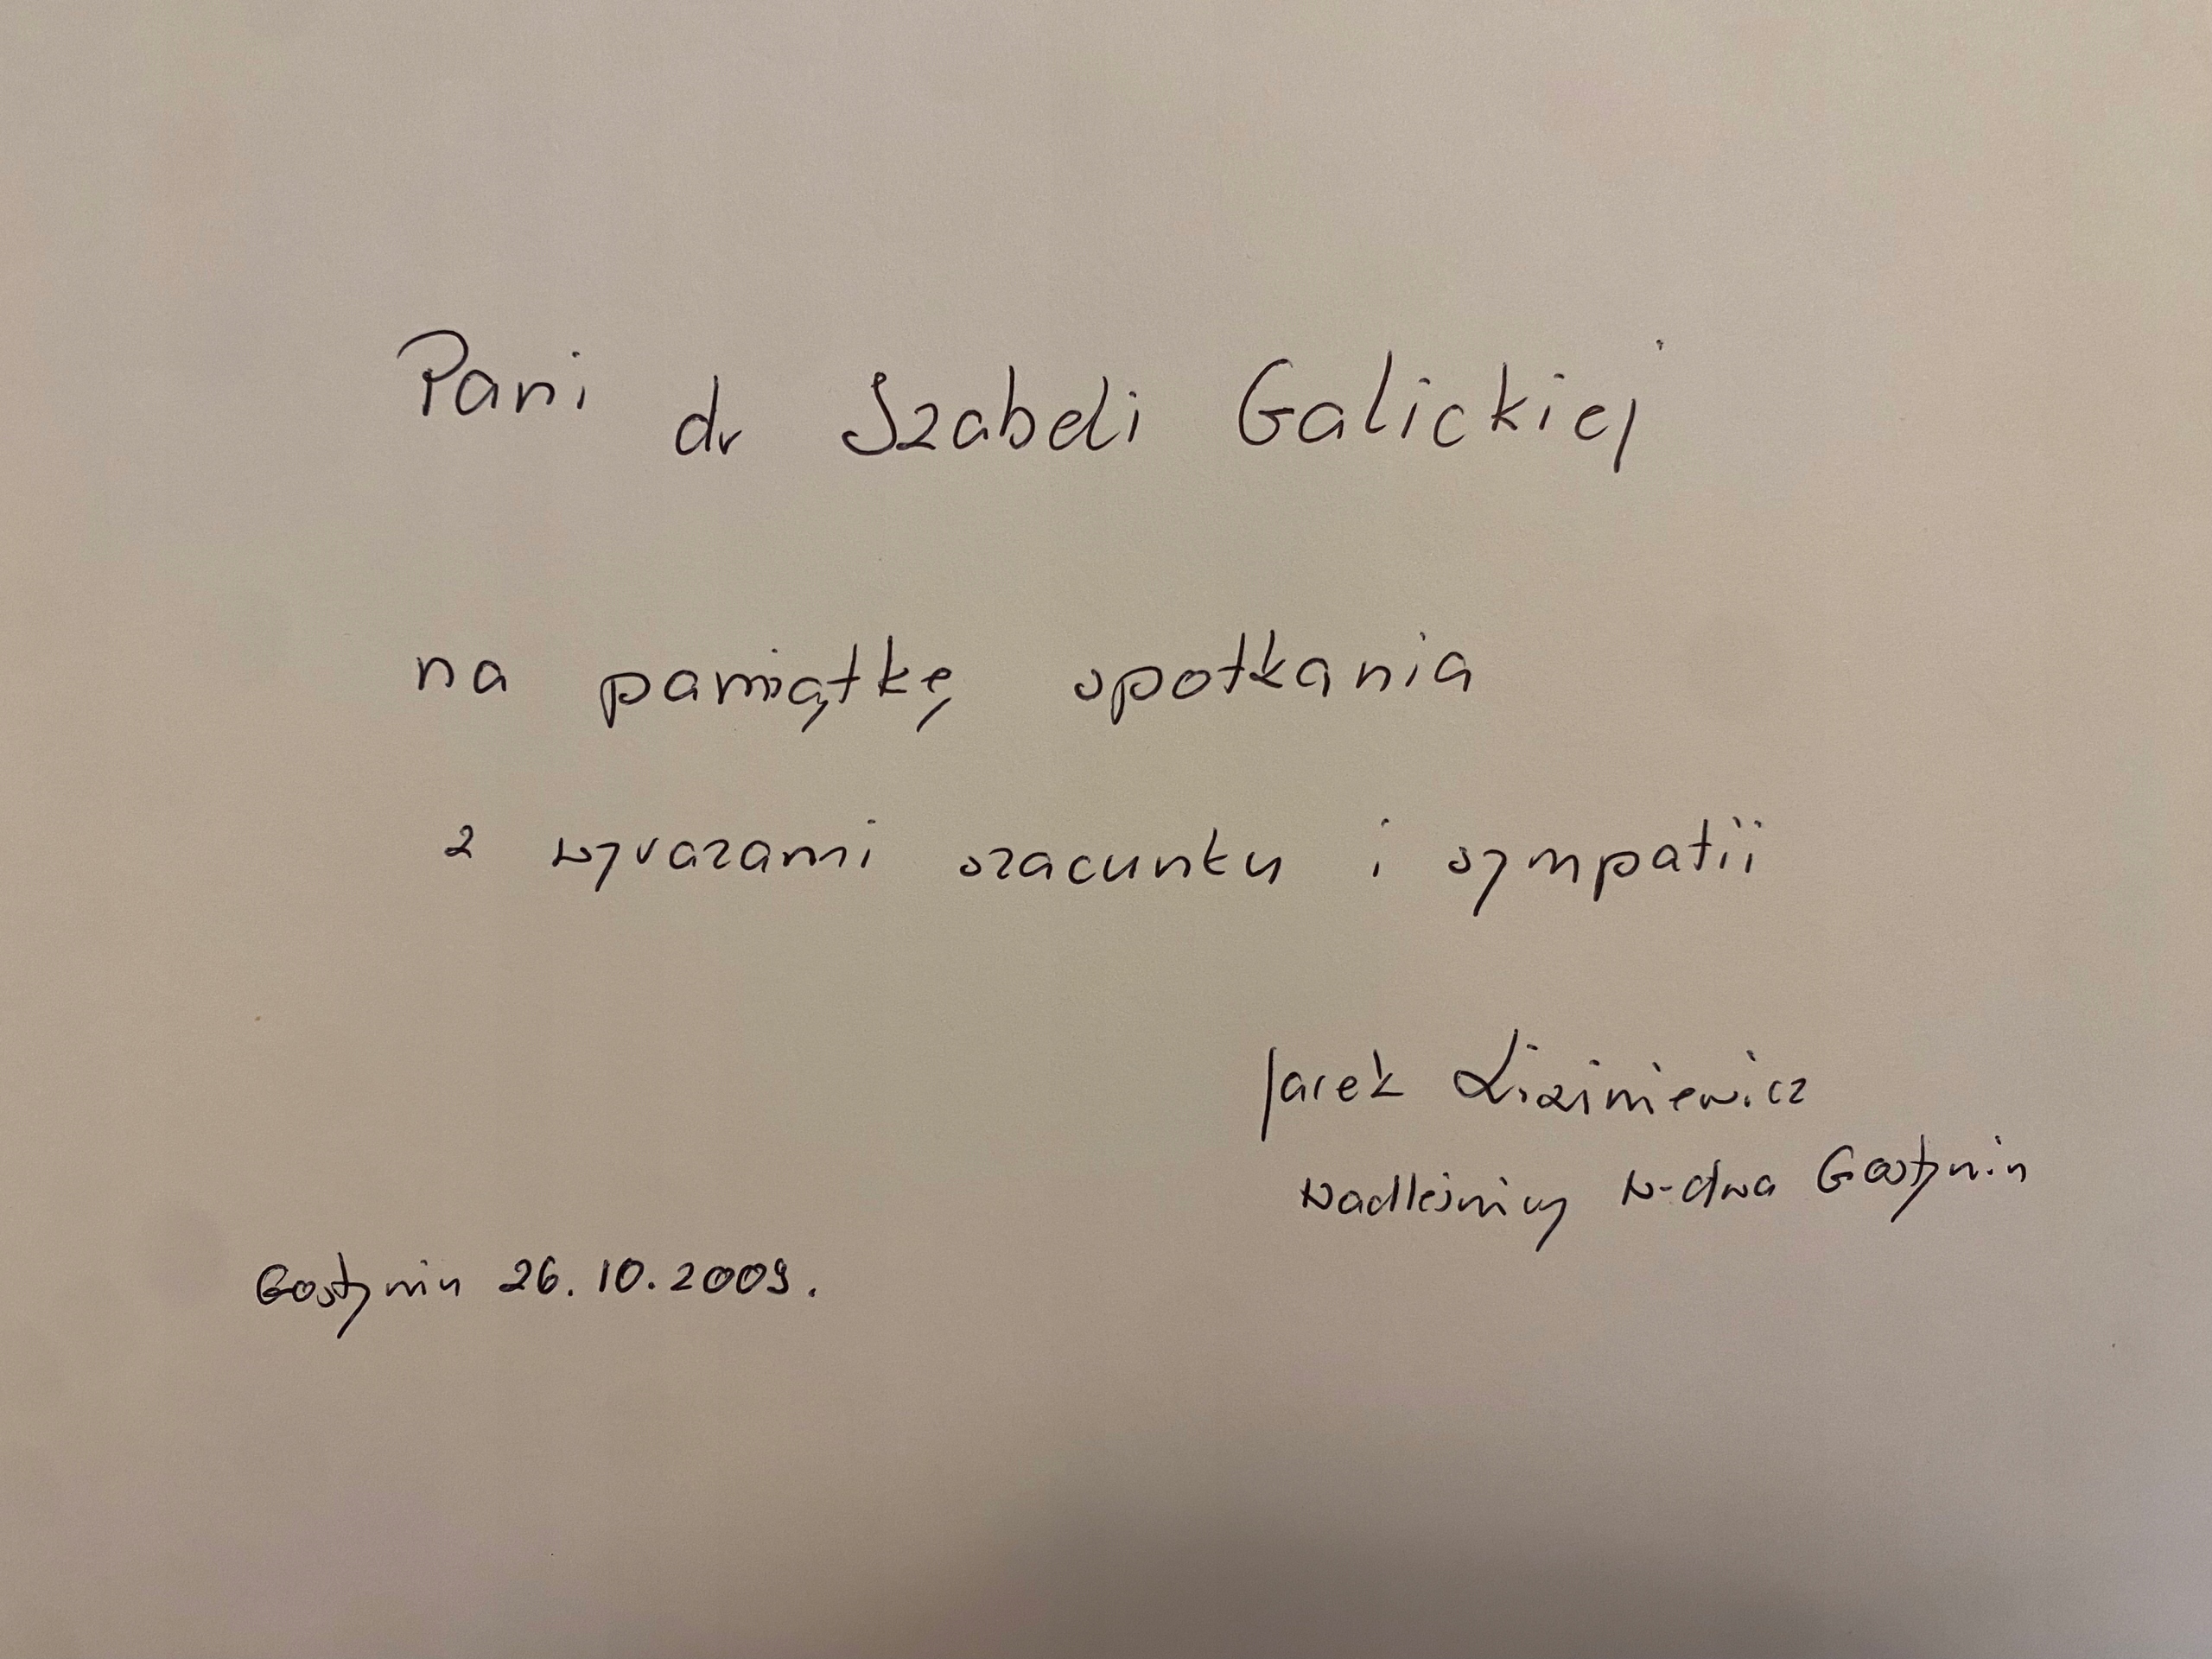 Pani dr Izabeli Galickiej
na pamiątkę spotkania
z wyrazami szacunku i sympatii
Jarek Liziniewicz
Nadleśniczy N-ctwa Gostynin
Gostynin 26.10.2009.